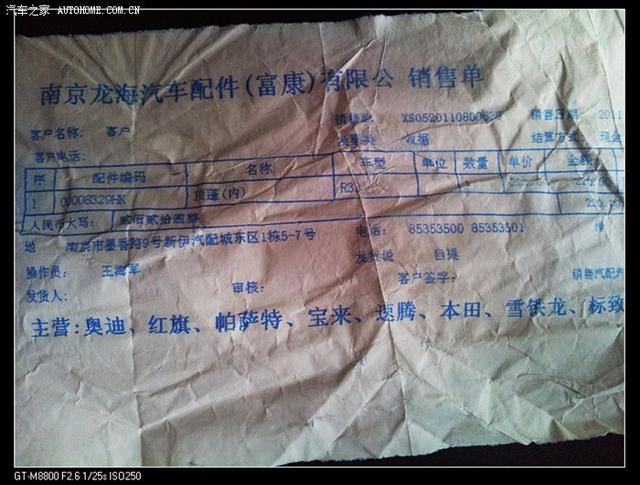 汽车之家 AUTOHOME.COM.CN
南京龙海汽车配件(富康)有限公 销售单
客户名称: 客户
销售日期 2011
客户电话:
发票类 收据 结算方式: 现金
序 配件编码 名称 车型 单位 数量 单价 金额
1 00008329HK 顶蓬(内) R33 1 220.00
人民币大写: 贰佰贰拾圆整 220.00
地 南京市墨香路9号新伊汽配城东区1栋5-7号 电话: 85353500 85353501 传
操作员: 王海军 发货设 自提
发货人: 审核: 客户签字: 销售汽配
主营:奥迪、红旗、帕萨特、宝来、速腾、本田、雪铁龙、标致
GT-M8800 F2.6 1/25s ISO250